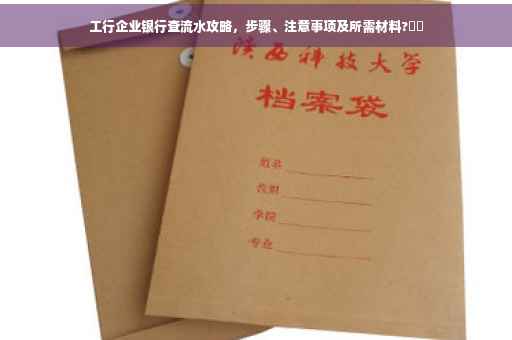 工行企业银行查流水攻略，步骤、注意事项及所需材料?
陕西科技大学
档案袋
姓名
学院
专业